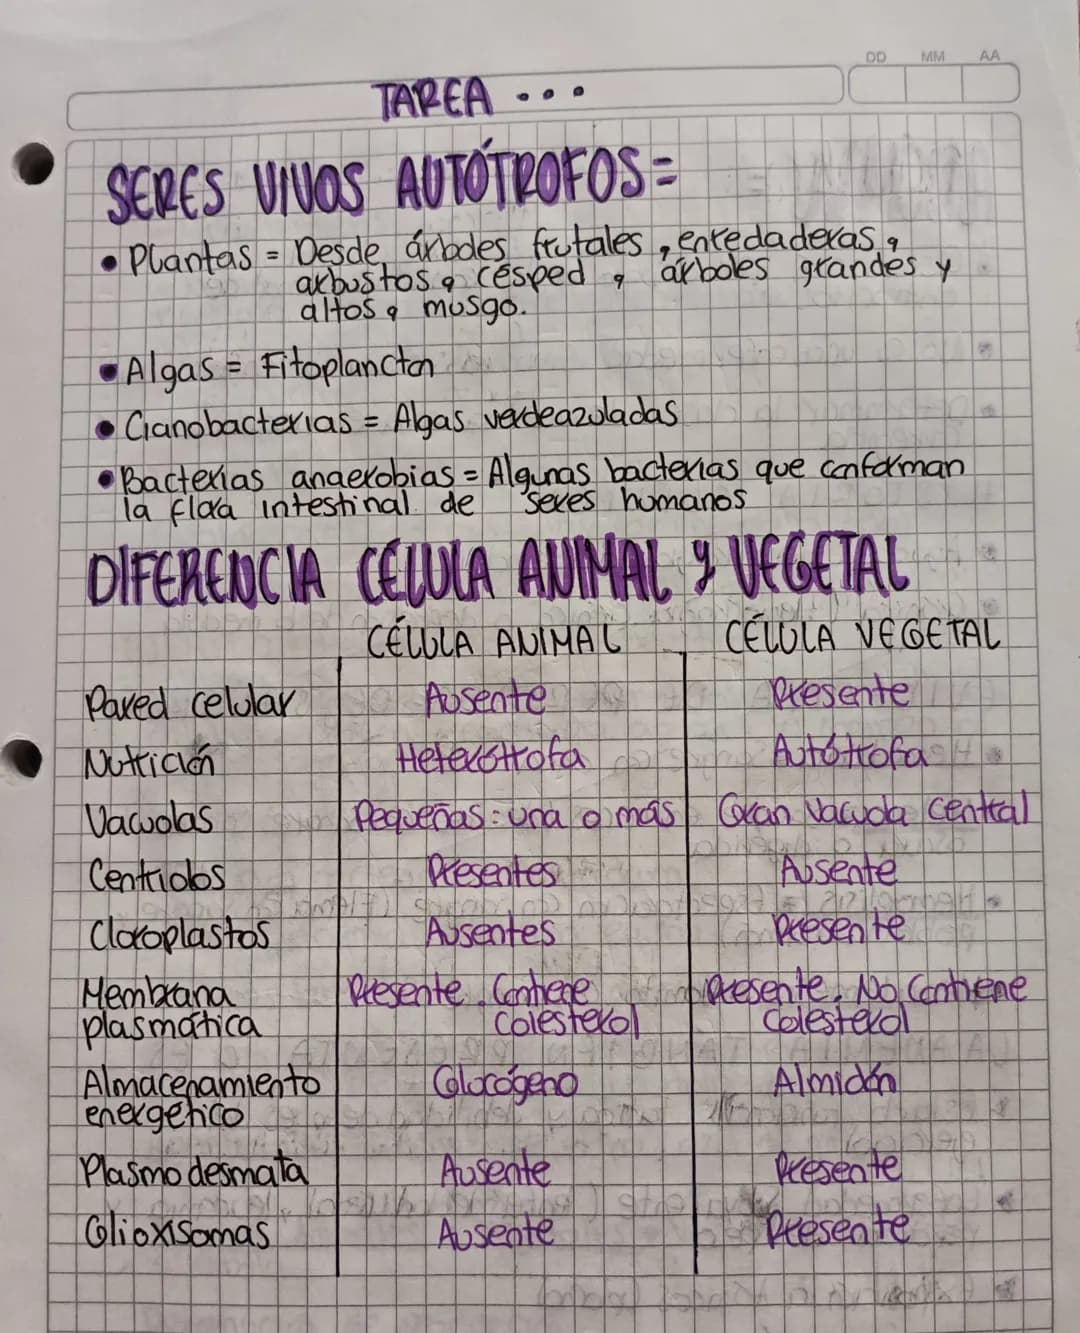 DD MM AA
TAREA ...
SERES VIVOS AUTÓTROFOS =
• Plantas = Desde árboles frutales, enredaderas,
arbustos, césped, árboles grandes y
altos, musgo.
• Algas = Fitoplancton
• Cianobacterias = Algas verdeazuladas
• Bacterias anaerobias = Algunas bacterias que conforman
la flora intestinal de seres humanos
DIFERENCIA CÉLULA ANIMAL y VEGETAL
CÉLULA ANIMAL CÉLULA VEGETAL
Pared celular Ausente Presente
Nutrición Heterótrofa Autótrofa
Vacuolas Pequeñas: una o más Gran Vacuola Central
Centriolos Presentes Ausente
Cloroplastos Ausentes Presente
Membrana Presente. Contiene Presente. No Contiene
plasmática colesterol Colesterol
Almacenamiento Glucógeno Almidón
energético
Plasmodesmata Ausente Presente
Glioxisomas Ausente Presente